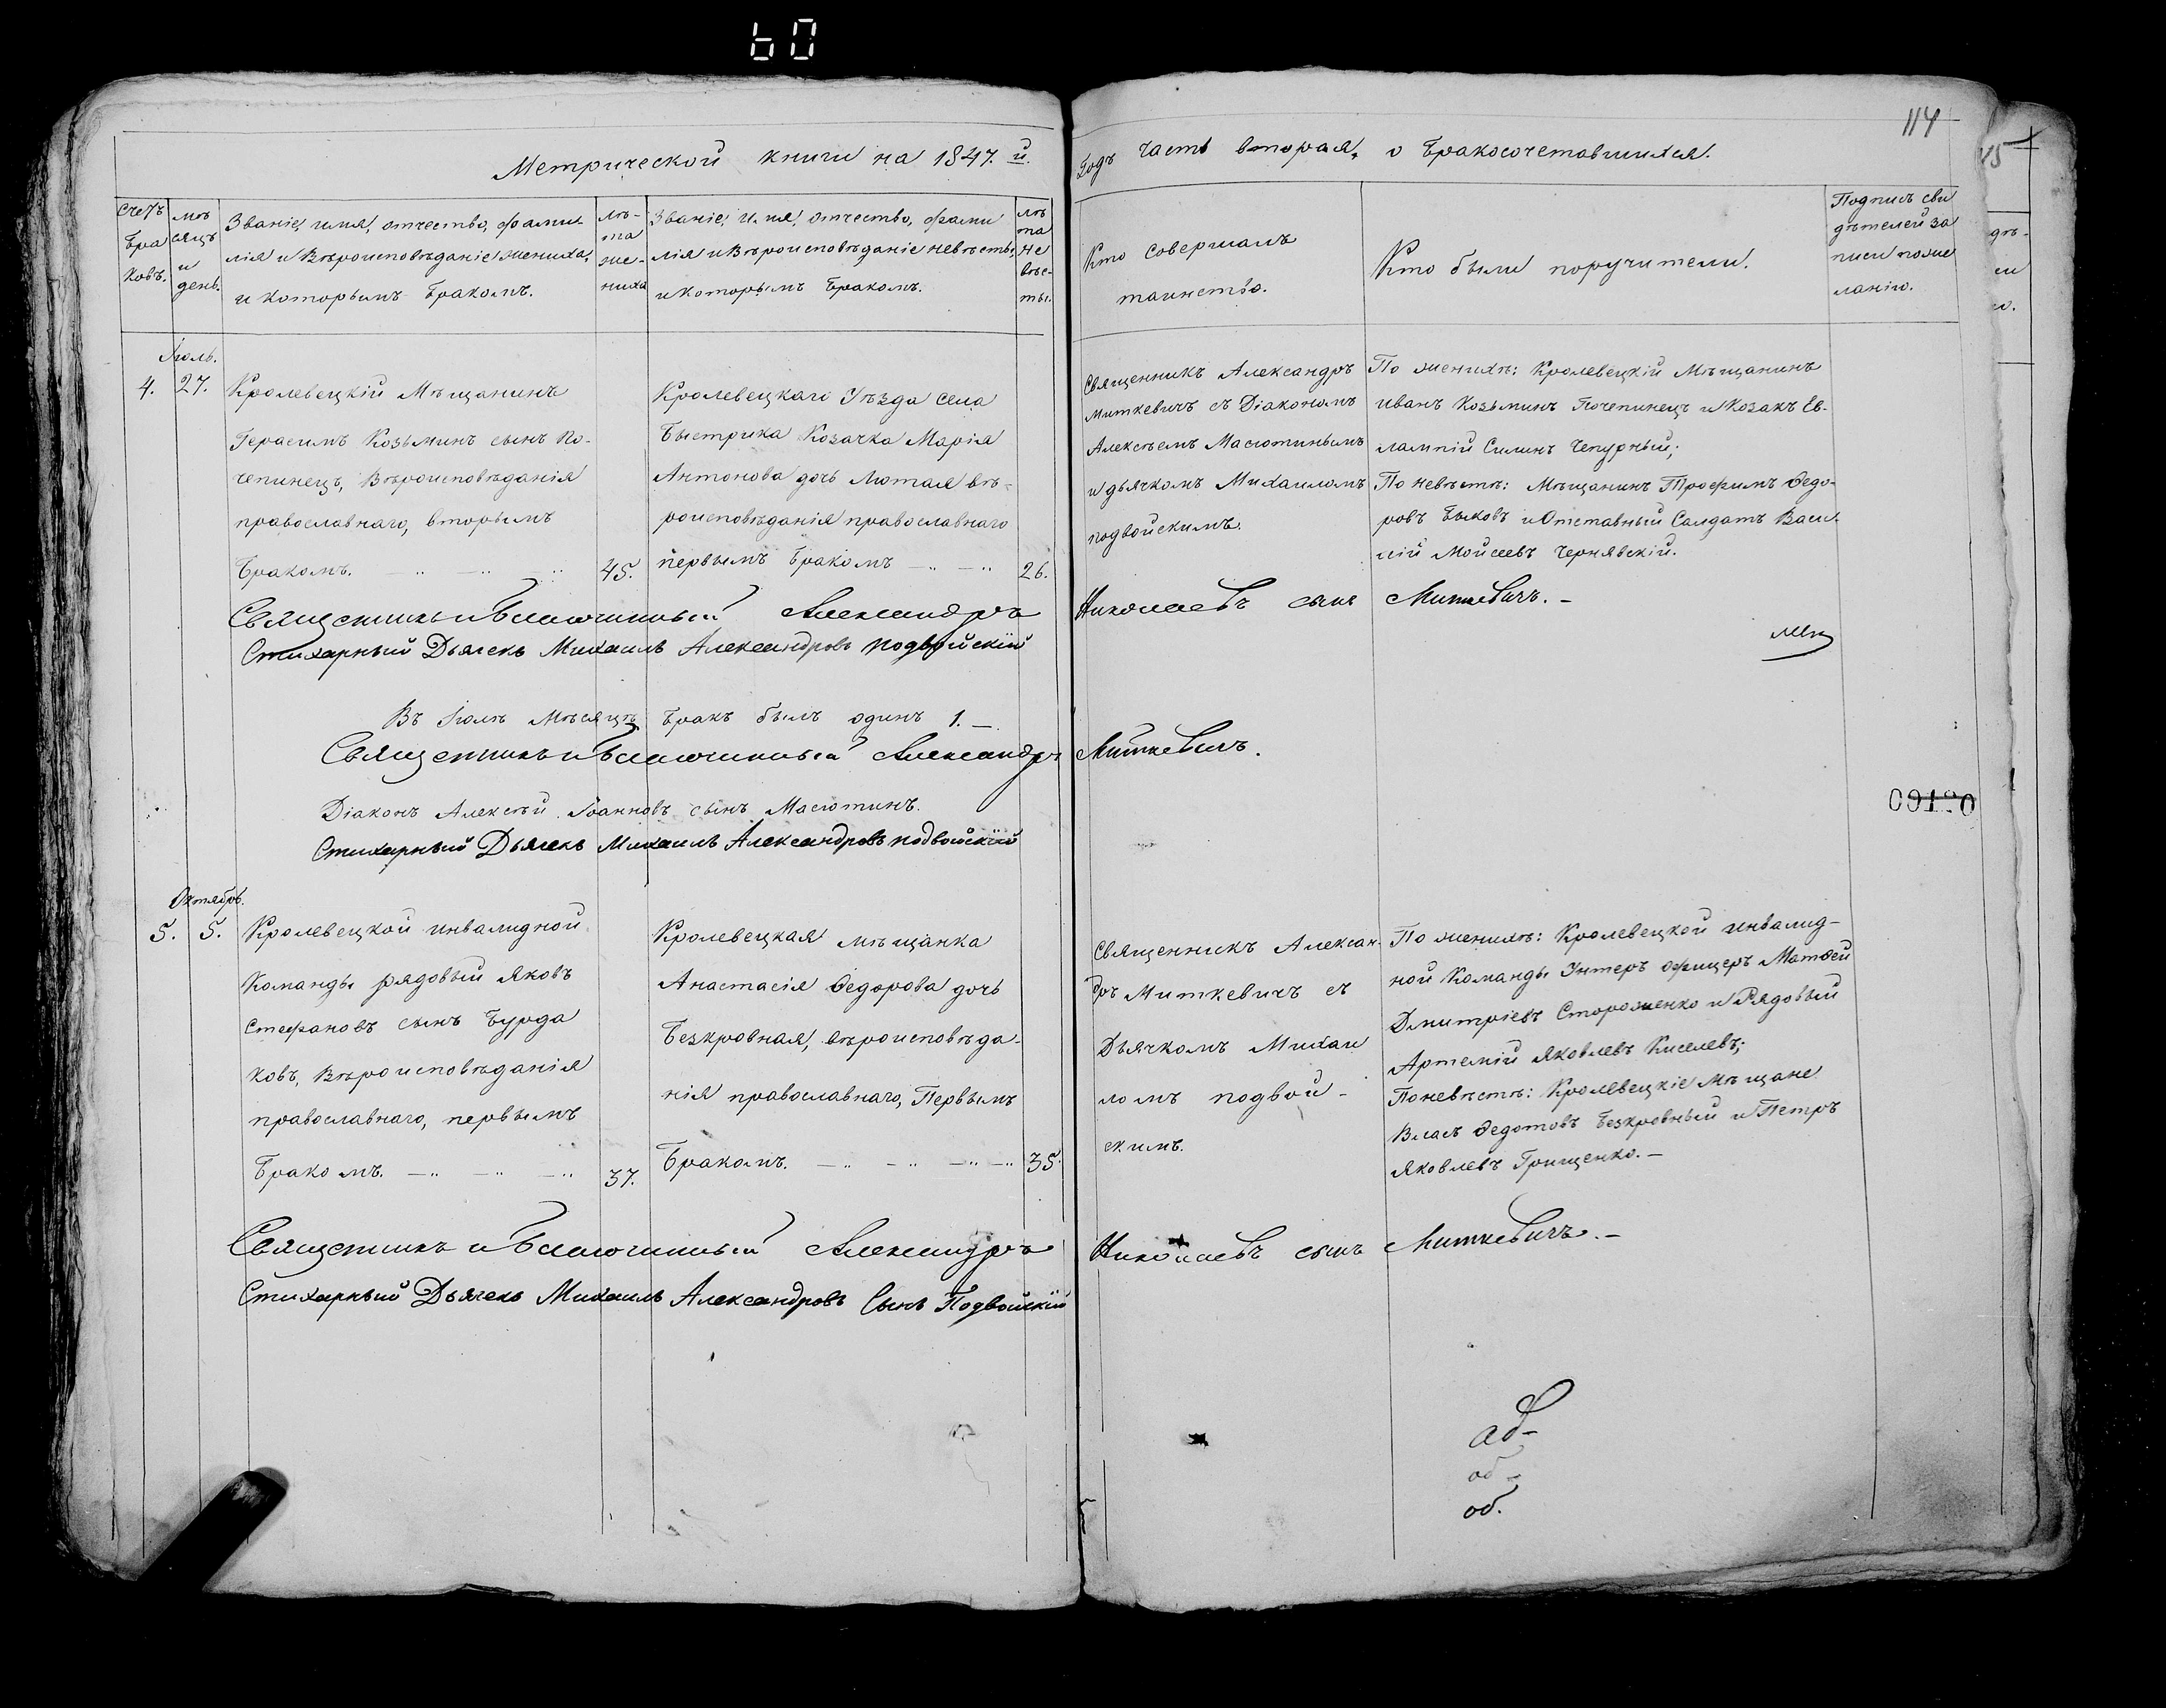 60
114
Метрической книги на 1847. й.
Годъ часть вторая, о бракосочетавшихся.
Счетъ браковъ.
Мѣсяцъ и день.
Званіе, имя, отчество, фами-
лія и вѣроисповѣданіе жениха,
и которымъ бракомъ.
Лѣ-
та
же-
ниха
Званіе, имя, отчество, фами
лія и вѣроисповѣданіе невѣсты,
и которымъ бракомъ.
Лѣ
та
не
вѣс-
ты.
Кто совершалъ
таинство.
Кто были поручители.
Подпись сви
дѣтелей за
писи по же
ланію.
Іюль.
4. 27.
Кролевецкій Мѣщанинъ
Герасимъ Козьминъ сынъ По-
чепинецъ, Вѣроисповѣданія
православнаго, вторымъ
бракомъ. 45.
Кролевецкаго Уѣзда села
Быстрика Козачка Марія
Антонова дочь Лютая вѣ-
роисповѣданія православнаго
первымъ бракомъ 26.
Священникъ Александръ
Миткевичъ съ Діакономъ
Алексѣемъ Масютинымъ
и дьячкомъ Михаиломъ
подвойскимъ.
По женихѣ: Кролевецкій Мѣщанинъ
Иванъ Козьминъ Почепинецъ и Козакъ Ев-
лампій Силинъ Чепурный;
По невѣстѣ: Мѣщанинъ Трофимъ Ѳедо-
ровъ Быковъ и Отставный Салдатъ Васи-
лій Мойсеевъ Чернявскій.
Священникъ и Благочинный Александръ Николаевъ сынъ Миткевичъ.
Стихарный Дьячекъ Михаилъ Александровъ подвойскій
Въ Іюлѣ Мѣсяцѣ бракъ былъ одинъ 1.
Священникъ и Благочинный Александръ Миткевичъ.
Діаконъ Алексѣй Іоанновъ сынъ Масютинъ.
Стихарный Дьячекъ Михаилъ Александровъ подвойскій
Октябрь.
5. 5.
Кролевецкой инвалидной
Команды рядовый Яковъ
Стефановъ сынъ Бурда
ковъ, Вѣроисповѣданія
православнаго, первымъ
бракомъ. 37.
Кролевецкая мѣщанка
Анастасія Ѳедорова дочь
Безкровная, вѣроисповѣда-
нія православнаго, Первымъ
бракомъ. 35.
Священникъ Алексан-
дръ Миткевичъ съ
Дьячкомъ Михаи
ломъ подвой-
скимъ.
По женихѣ: Кролевецкой инвалид-
ной Команды Унтеръ офицеръ Матѳей
Дмитріевъ Стороженко и Рядовый
Артемій Яковлевъ Киселевъ;
По невѣстѣ: Кролевецкіе Мѣщане
Власъ Ѳедотовъ Безкровный и Петръ
Яковлевъ Грищенко.
Священникъ и Благочинный Александръ Николаевъ сынъ Миткевичъ.
Стихарный Дьячекъ Михаилъ Александровъ Сынъ Подвойскій